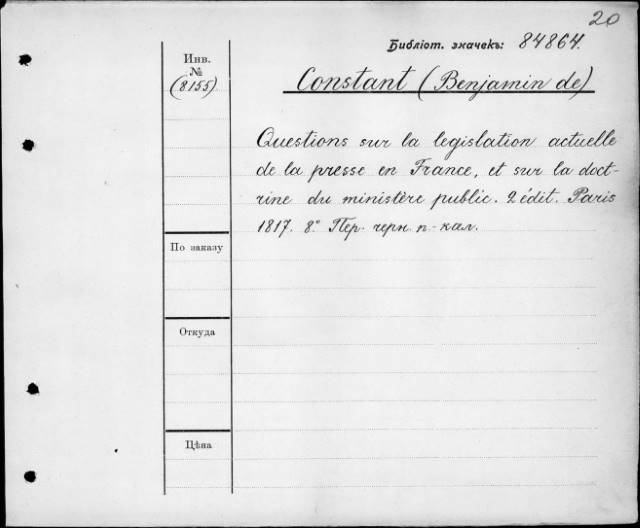 20
Библіот. значекъ: 84864.
Инв.
№
(8155)
Constant (Benjamin de)
Questions sur la legislation actuelle
de la presse en France, et sur la doct-
rine du ministère public. 2 édit. Paris
1817. 8º Пер. черн. п.-кал.
По заказу
Откуда
Цѣна